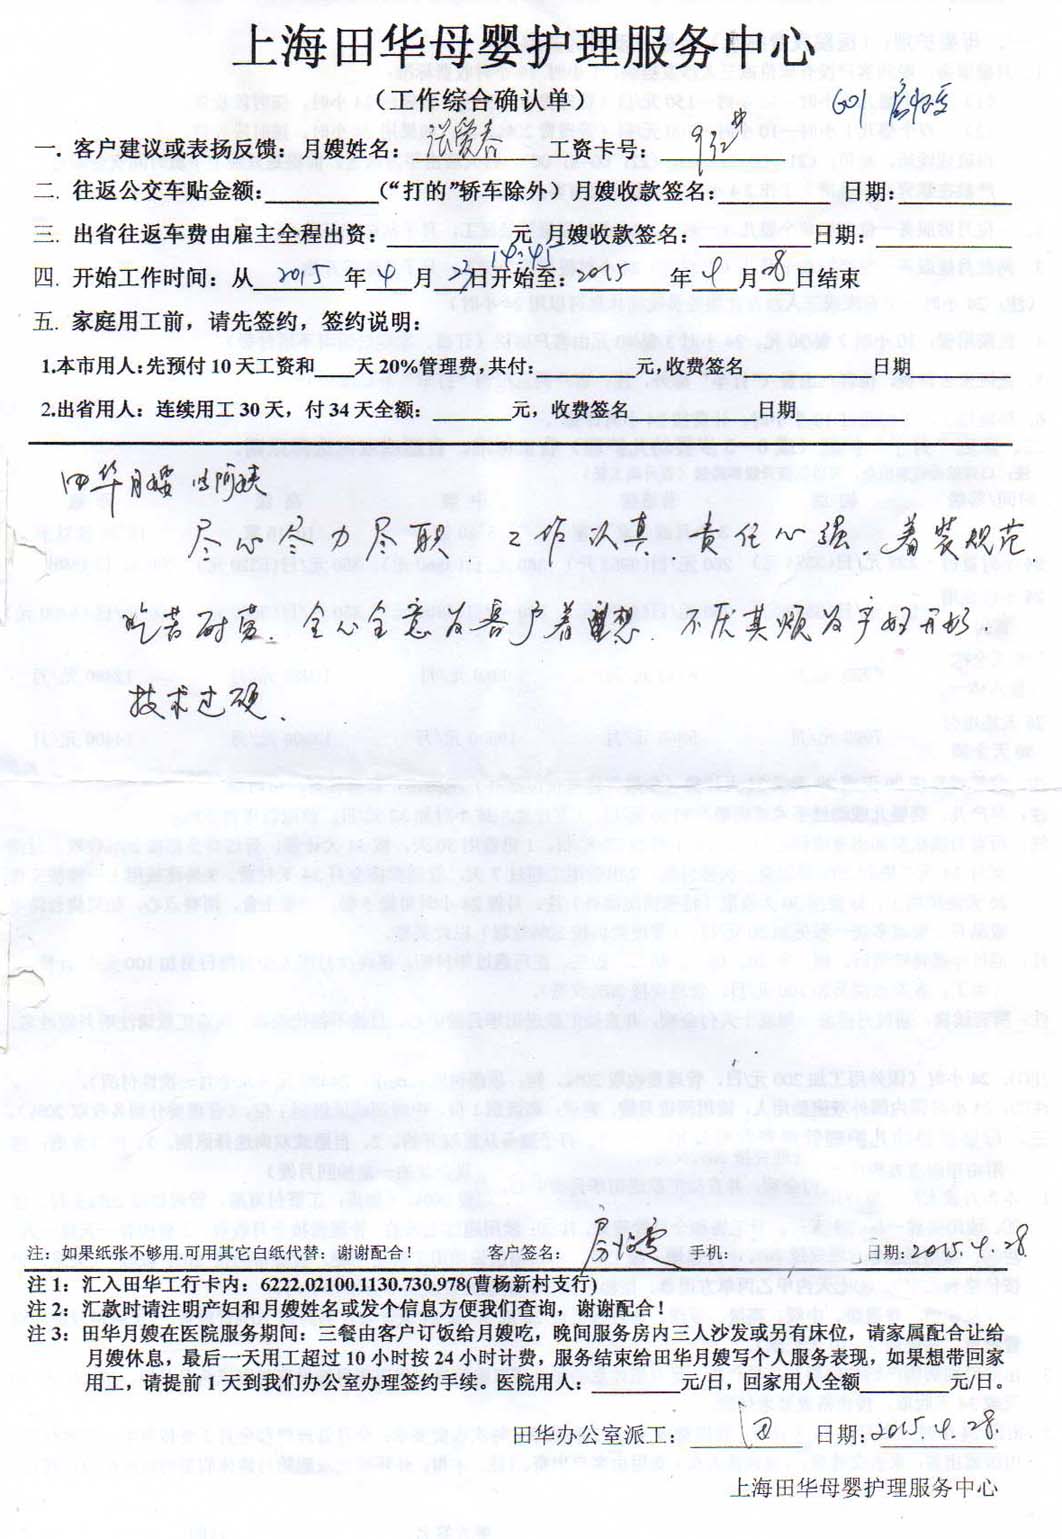 上海田华母婴护理服务中心
（工作综合确认单）
601
一. 客户建议或表扬反馈：月嫂姓名：张爱春 工资卡号：932#
二. 往返公交车贴金额：（“打的”轿车除外）月嫂收款签名： 日期：
三. 出省往返车费由雇主全程出资： 元 月嫂收款签名： 日期：
14:45
四. 开始工作时间：从 2015 年 4 月 23日开始至：2015 年 4 月 28 日结束
五. 家庭用工前，请先签约，签约说明：
1.本市用人：先预付 10 天工资和 天 20%管理费，共付： 元，收费签名 日期
2.出省用人：连续用工30 天，付 34 天全额： 元， 收费签名 日期
田华月嫂 阿姨
尽心尽力尽职．工作认真．责任心强．着装规范．
吃苦耐劳．全心全意为产着想．不厌其烦为产妇开奶．
技术过硬．
注：如果纸张不够用,可用其它白纸代替；谢谢配合！ 客户签名： 手机： 日期：2015.4.28
注 1：汇入田华工行卡内：6222.02100.1130.730.978(曹杨新村支行)
注 2：汇款时请注明产妇和月嫂姓名或发个信息方便我们查询，谢谢配合！
注 3：田华月嫂在医院服务期间：三餐由客户订饭给月嫂吃，晚间服务房内三人沙发或另有床位，请家属配合让给
月嫂休息，最后一天用工超过 10 小时按 24 小时计费，服务结束给田华月嫂写个人服务表现，如果想带回家
用工，请提前 1 天到我们办公室办理签约手续。医院用人： 元/日，回家用人金额 元/日。
田华办公室派工： 田 日期：2015.4.28
上海田华母婴护理服务中心